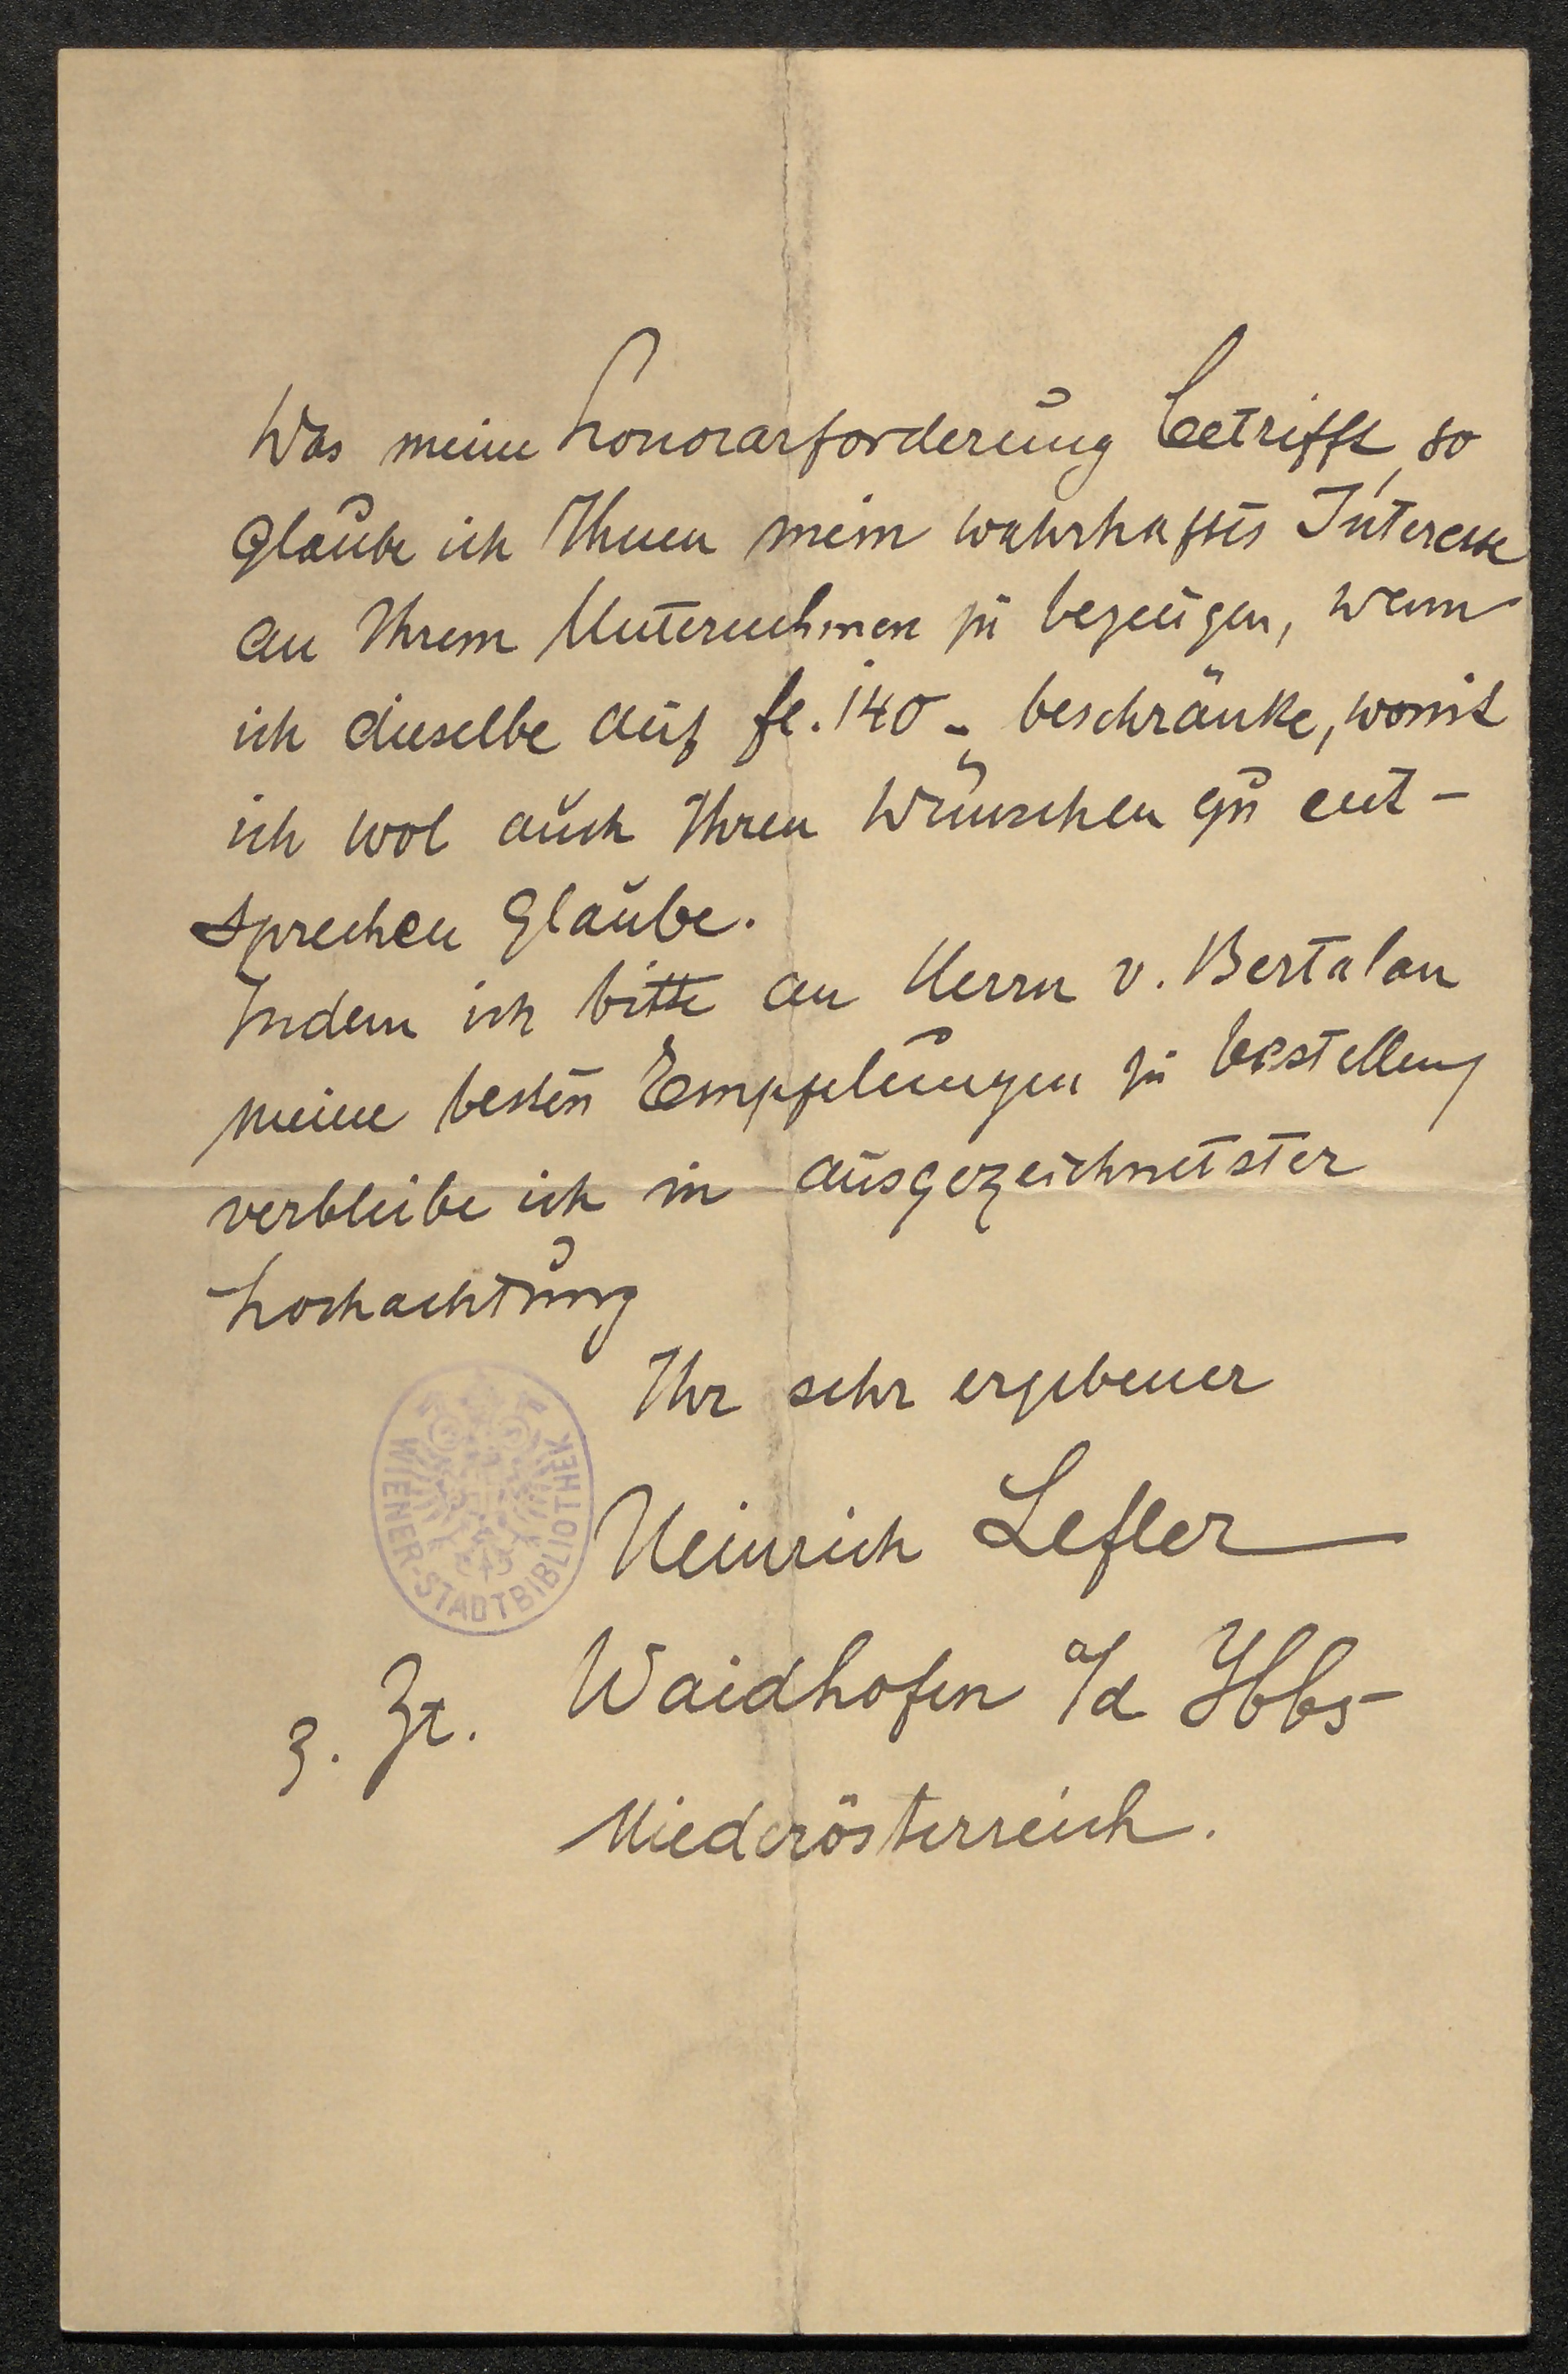 Was meine Honorarforderung betrifft, so
glaube ich Ihnen mein wahrhaftes Interesse
an Ihrem Unternehmen zu bezeugen, wenn
ich dieselbe auf fl. 140 - beschränke, womit
ich wol auch Ihren Wünschen zu ent-
sprechen glaube.
Indem ich bitte an Herrn v. Bertalan
meine besten Empfelungen zu bestellen,
verbleibe ich in ausgezeichnetster
Hochachtung
Ihr sehr ergebener
WIENER-STADTBIBLIOTHEK
Heinrich Lefler
z. Zt. Waidhofen a/d Ybbs
Niederösterreich.